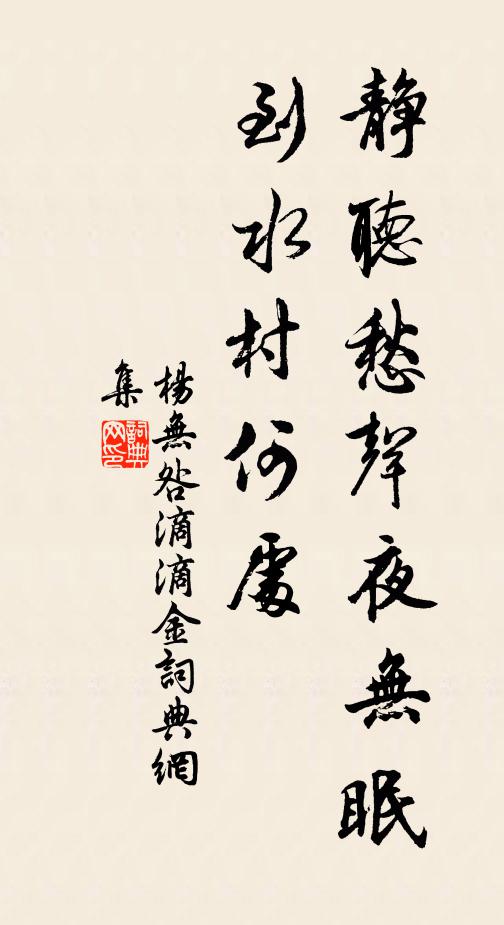 靜聽愁聲夜無眠
到水村何處
楊無咎滴滴金詞典網
集
詞典
网印